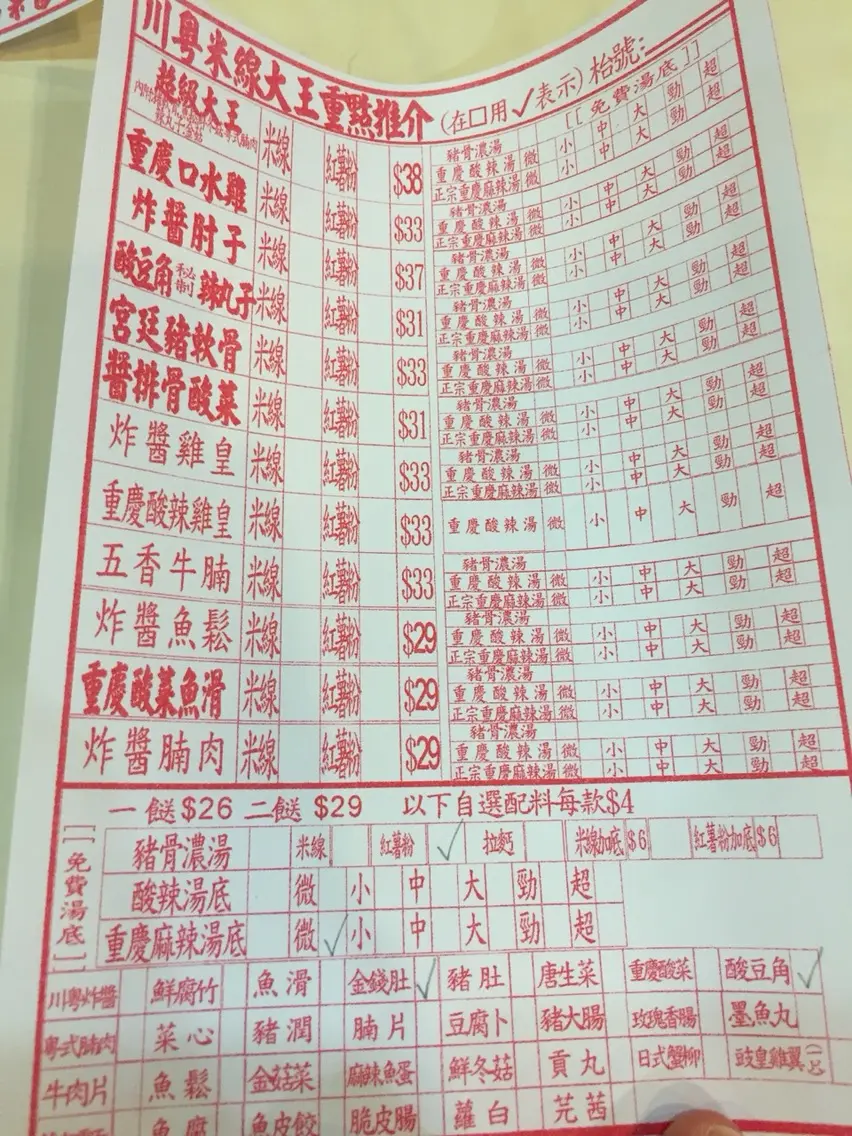 川粵米線大王重點推介 (在□用✓表示) 枱號:
[[免費湯底]]
超級大王 米線 紅薯粉 $38 豬骨濃湯
重慶酸辣湯 微 小 中 大 勁 超
正宗重慶麻辣湯 微 小 中 大 勁 超
重慶口水雞 米線 紅薯粉 $33 豬骨濃湯
重慶酸辣湯 微 小 中 大 勁 超
正宗重慶麻辣湯 微 小 中 大 勁 超
炸醬肘子 米線 紅薯粉 $37 豬骨濃湯
重慶酸辣湯 微 小 中 大 勁 超
正宗重慶麻辣湯 微 小 中 大 勁 超
酸豆角秘制辣丸子 米線 紅薯粉 $31 豬骨濃湯
重慶酸辣湯 微 小 中 大 勁 超
正宗重慶麻辣湯 微 小 中 大 勁 超
宮廷豬軟骨 米線 紅薯粉 $33 豬骨濃湯
重慶酸辣湯 微 小 中 大 勁 超
正宗重慶麻辣湯 微 小 中 大 勁 超
醬排骨酸菜 米線 紅薯粉 $31 豬骨濃湯
重慶酸辣湯 微 小 中 大 勁 超
正宗重慶麻辣湯 微 小 中 大 勁 超
炸醬雞皇 米線 紅薯粉 $33 豬骨濃湯
重慶酸辣湯 微 小 中 大 勁 超
正宗重慶麻辣湯 微 小 中 大 勁 超
重慶酸辣雞皇 米線 紅薯粉 $33 重慶酸辣湯 微 小 中 大 勁 超
五香牛腩 米線 紅薯粉 $33 豬骨濃湯
重慶酸辣湯 微 小 中 大 勁 超
正宗重慶麻辣湯 微 小 中 大 勁 超
炸醬魚鬆 米線 紅薯粉 $29 豬骨濃湯
重慶酸辣湯 微 小 中 大 勁 超
正宗重慶麻辣湯 微 小 中 大 勁 超
重慶酸菜魚滑 米線 紅薯粉 $29 豬骨濃湯
重慶酸辣湯 微 小 中 大 勁 超
正宗重慶麻辣湯 微 小 中 大 勁 超
炸醬腩肉 米線 紅薯粉 $29 豬骨濃湯
重慶酸辣湯 微 小 中 大 勁 超
正宗重慶麻辣湯 微 小 中 大 勁 超
一餸$26 二餸$29 以下自選配料每款$4
[[免費湯底]]
豬骨濃湯 米線 紅薯粉 ✓ 拉麵 米線加底 $6 紅薯粉加底 $6
酸辣湯底 微 小 中 大 勁 超
重慶麻辣湯底 微 ✓ 小 中 大 勁 超
川粵炸醬 鮮腐竹 魚滑 金錢肚 ✓ 豬肚 唐生菜 重慶酸菜 酸豆角 ✓
粵式腩肉 菜心 豬潤 腩片 豆腐卜 豬大腸 玫瑰香腸 墨魚丸
牛肉片 魚鬆 金菇菜 麻辣魚蛋 鮮冬菇 貢丸 日式蟹柳 豉皇雞翼
魚腐 魚皮餃 脆皮腸 蘿白 芫茜